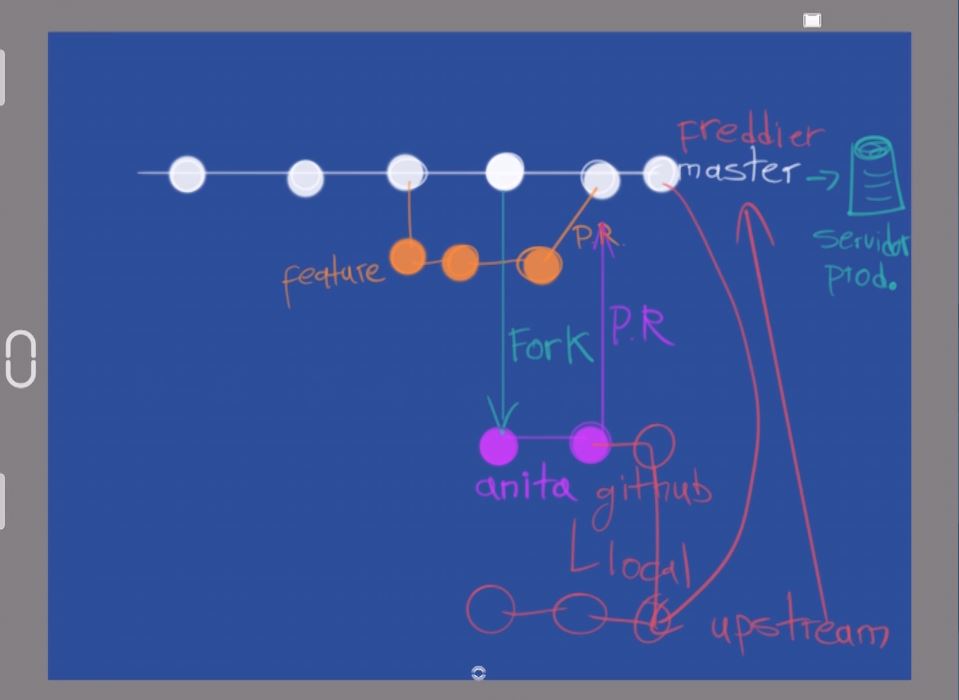 Freddier
master
servidor
prod.
P.R.
feature
Fork
P.R
anita
github
local
upstream